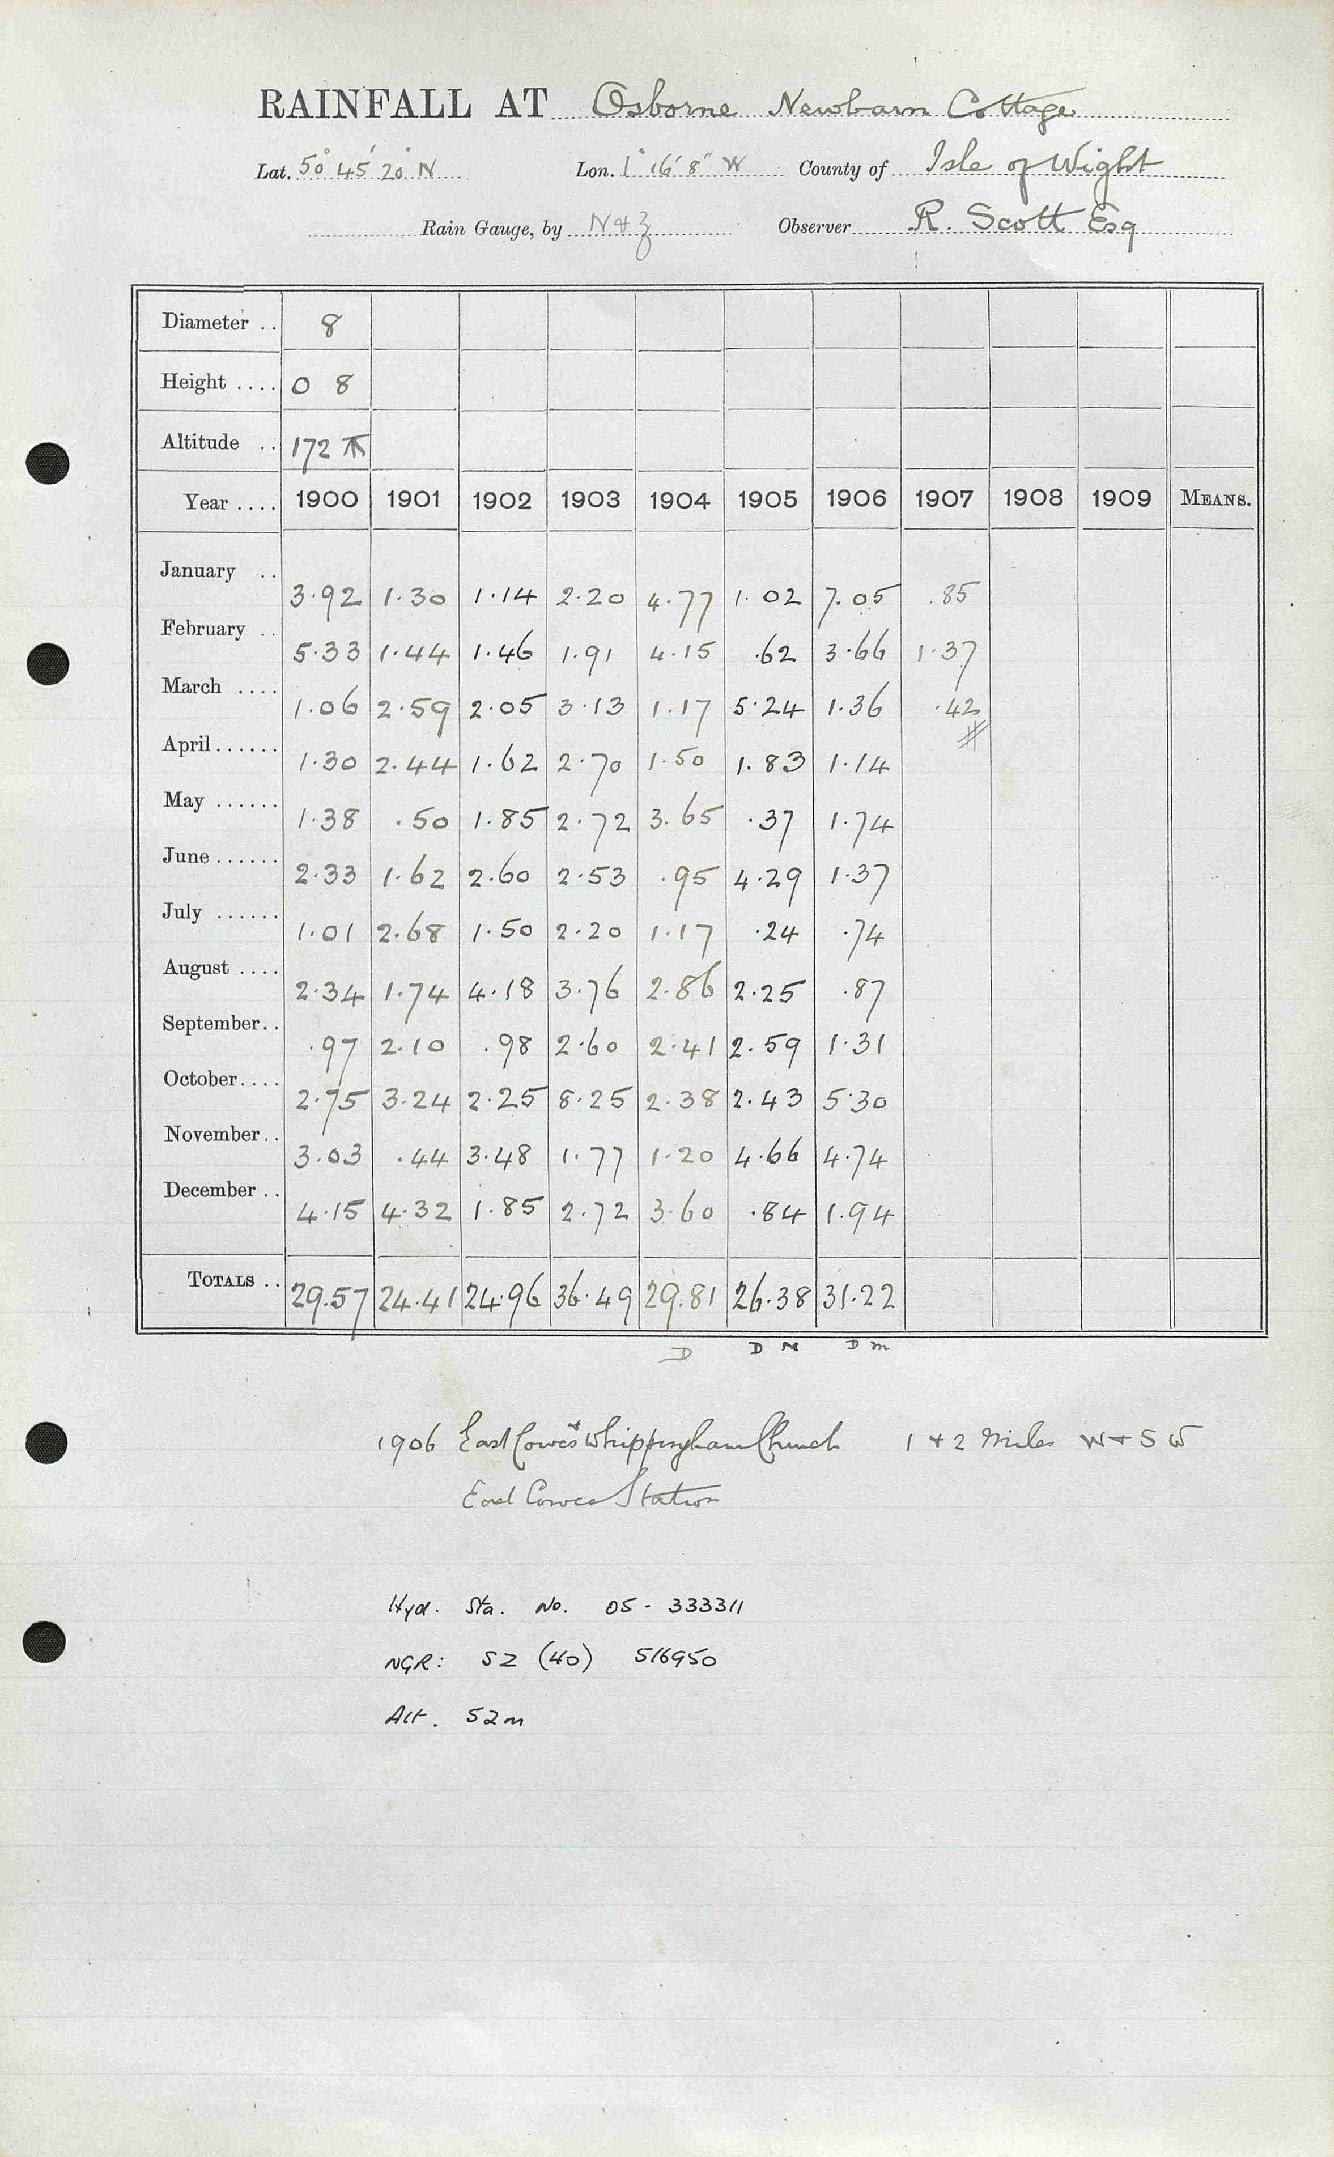 RAINFALL AT Osborne Newbarn Cottage
Lat. 50° 45' 20" N Lon. 1° 16' 8" W County of Isle of Wight
Rain Gauge, by N & Z Observer R. Scott Esq
Diameter .. 8
Height .... 0 8
Altitude .. 172
Year .... 1900 1901 1902 1903 1904 1905 1906 1907 1908 1909 MEANS.
January .. 3.92 1.30 1.14 2.20 4.77 1.02 7.05 .85
February .. 5.33 1.44 1.46 1.91 4.15 .62 3.66 1.37
March .... 1.06 2.59 2.05 3.13 1.17 5.24 1.36 .42
April...... 1.30 2.44 1.62 2.70 1.50 1.83 1.14
May ...... 1.38 .50 1.85 2.72 3.65 .37 1.74
June...... 2.33 1.62 2.60 2.53 .95 4.29 1.37
July ...... 1.01 2.68 1.50 2.20 1.17 .24 .74
August .... 2.34 1.74 4.18 3.76 2.86 2.25 .87
September.. .97 2.10 .98 2.60 2.41 2.59 1.31
October.... 2.75 3.24 2.25 8.25 2.38 2.43 5.30
November.. 3.03 .44 3.48 1.77 1.20 4.66 4.74
December .. 4.15 4.32 1.85 2.72 3.60 .84 1.94
TOTALS .. 29.57 24.41 24.96 36.49 29.81 26.38 31.22
D D N D m
1906 East Cowes & Whippingham Church 1 & 2 Miles W & S W
East Cowes Station
Hyd. Sta. No. 05 - 333311
NGR: SZ (40) 516950
Alt. 52m